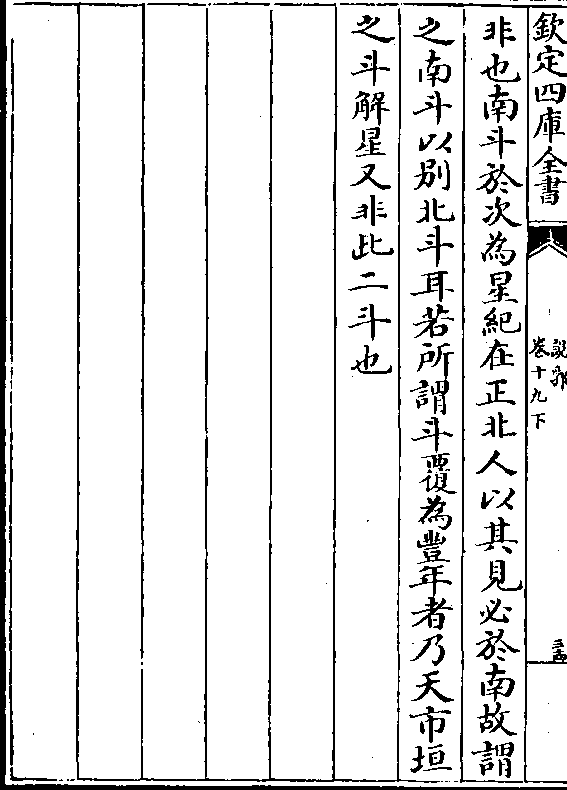 欽定四庫全書
說郛
卷十九下
非也南斗於次為星紀在正北人以其見必於南故謂
之南斗以別北斗耳若所謂斗覆為豐年者乃天市垣
之斗解星又非此二斗也